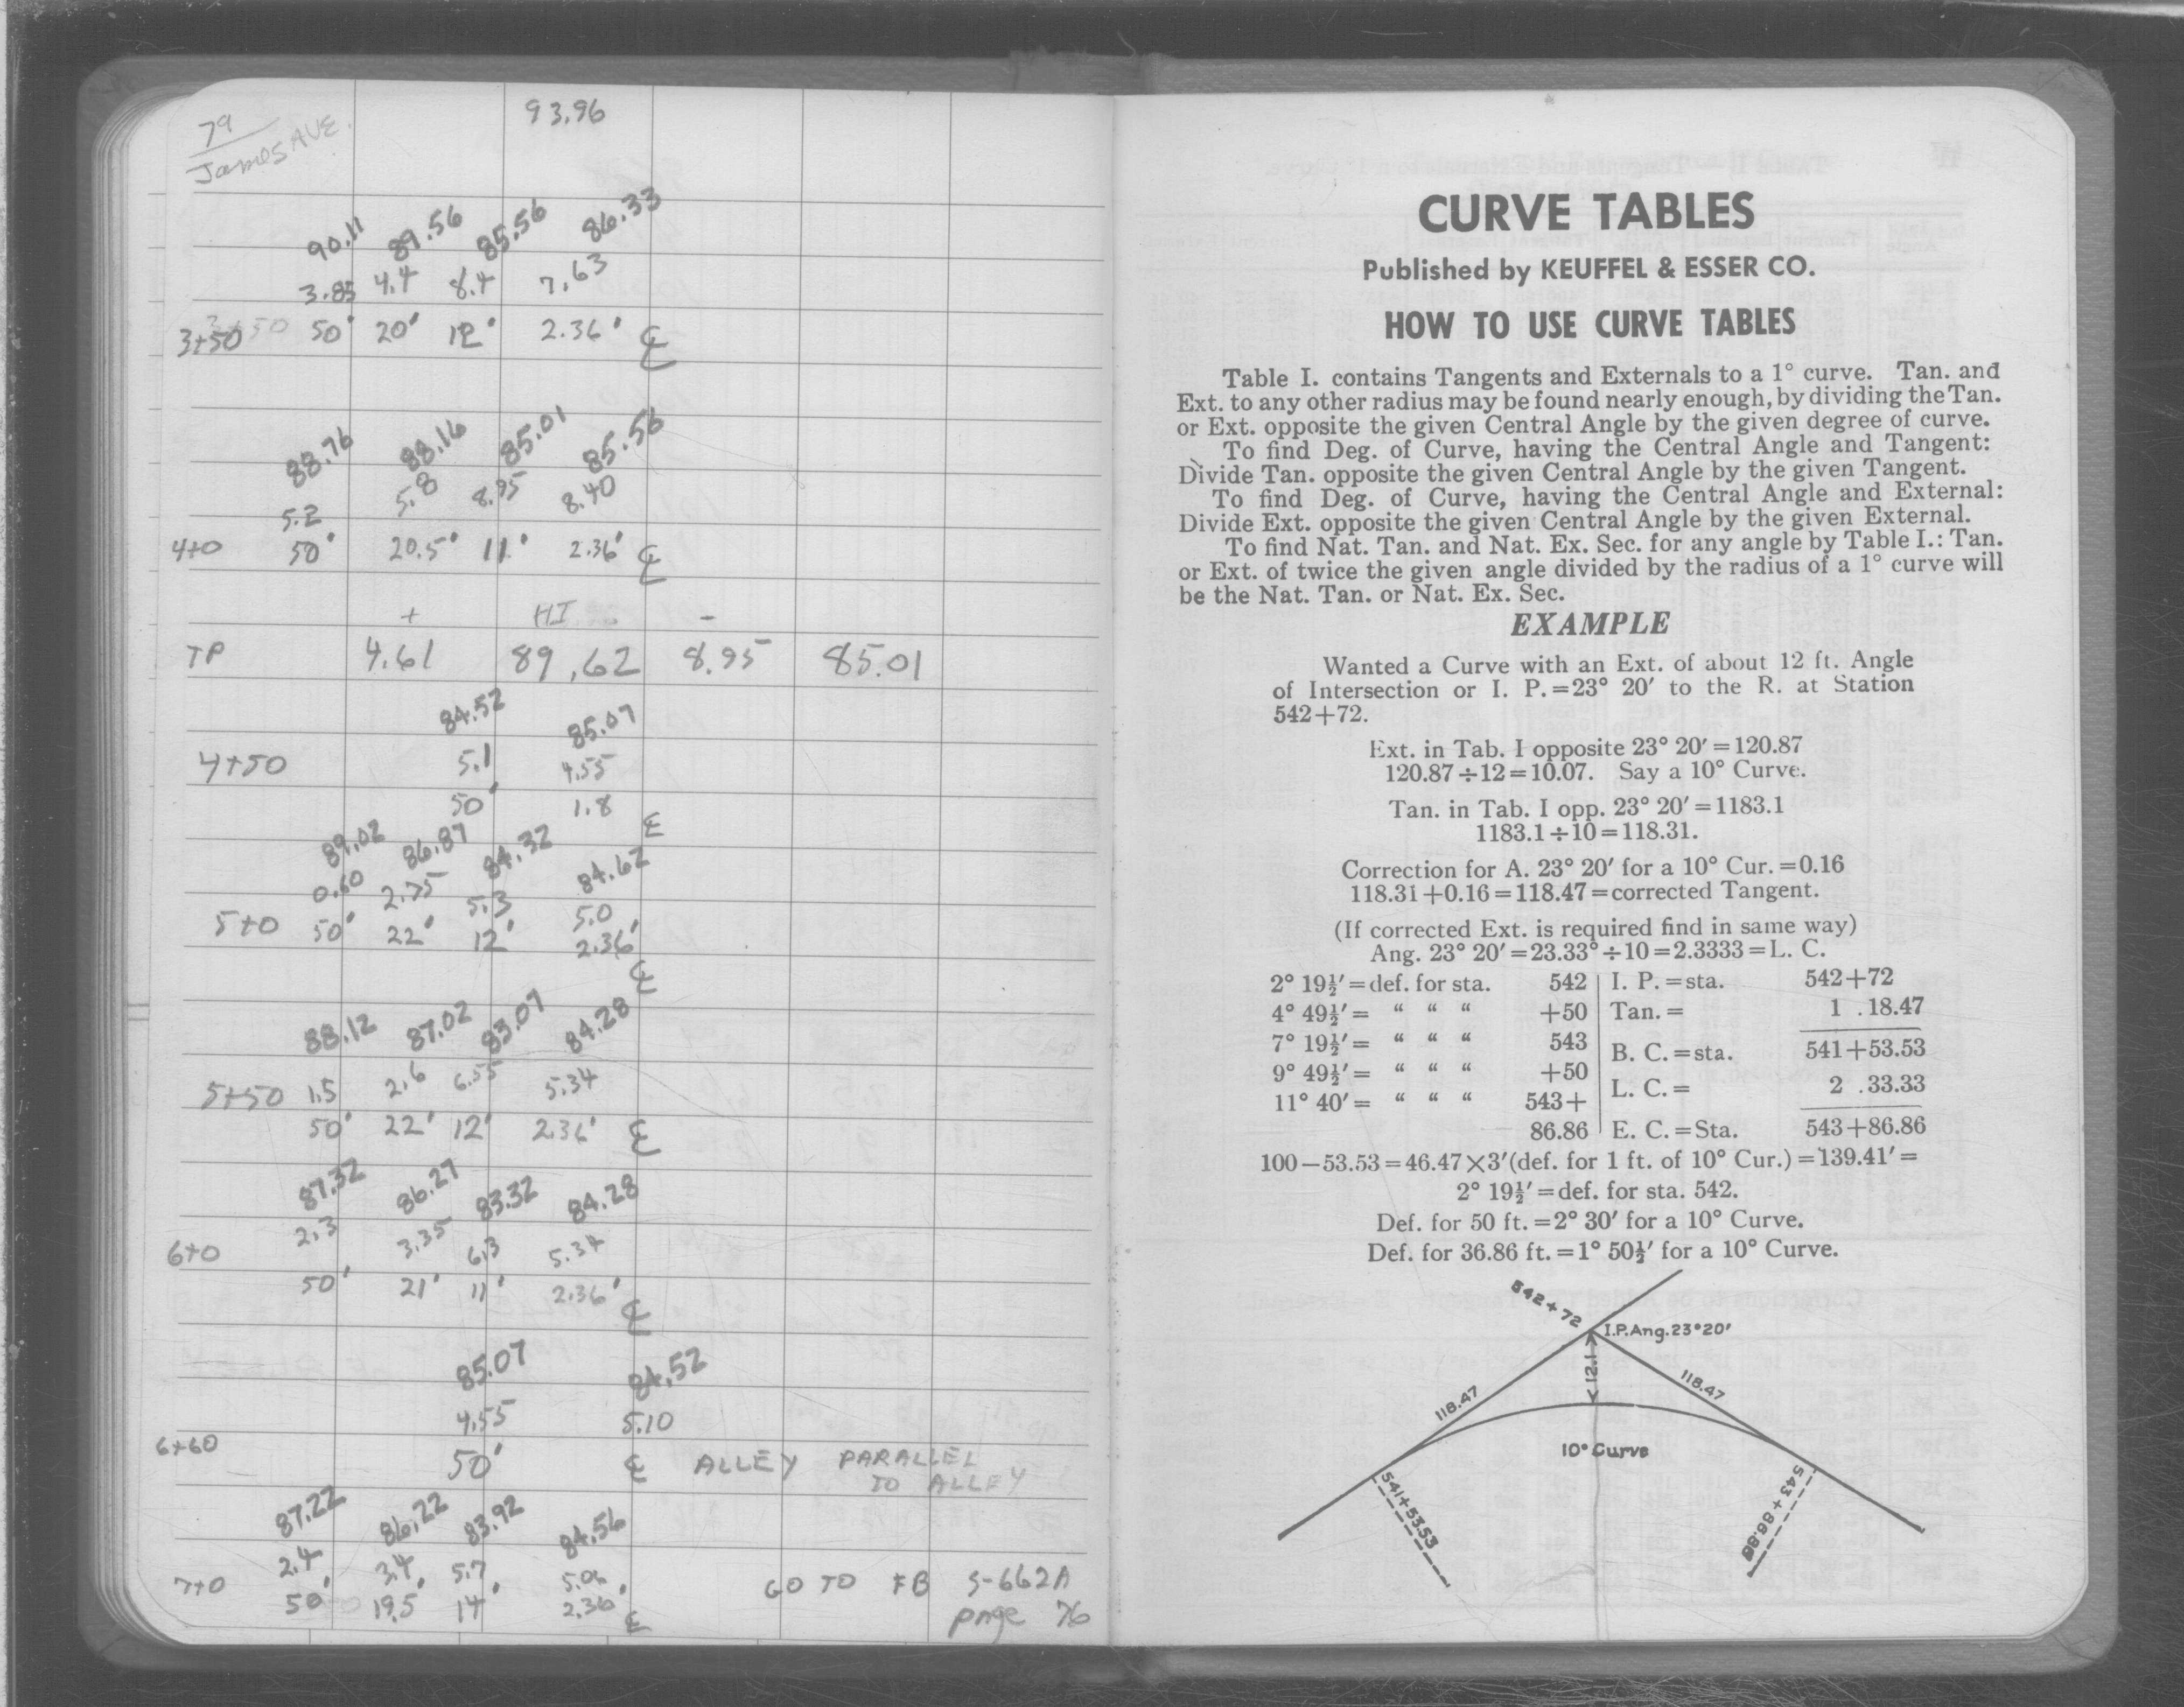 79
James AVE.
93.96
90.11 89.56 85.56 86.33
3.85 4.4 8.4 7.63
3+50 50' 20' 12' 2.36' ℄
88.76 88.16 85.01 85.56
5.2 5.8 8.95 8.40
4+0 50' 20.5' 11' 2.36' ℄
+ HI -
TP 4.61 89.62 8.95 85.01
84.52 85.07
4+50 5.1 4.55
50' 1.8 ℄
89.02 86.87 84.32 84.62
0.60 2.75 5.3 5.0
5+0 50' 22' 12' 2.36' ℄
88.12 87.02 83.07 84.28
5+50 1.5 2.6 6.55 5.34
50' 22' 12' 2.36' ℄
87.32 86.27 83.32 84.28
6+0 2.3 3.35 6.3 5.34
50' 21' 11' 2.36' ℄
85.07 84.52
4.55 5.10
6+60 50' ℄ ALLEY PARALLEL
TO ALLEY
87.22 86.22 83.92 84.56
2.4 3.4 5.7 5.06
7+0 50' 19.5' 14' 2.36' ℄
GO TO FB S-662A
page 76
CURVE TABLES
Published by KEUFFEL & ESSER CO.
HOW TO USE CURVE TABLES
Table I. contains Tangents and Externals to a 1° curve. Tan. and
Ext. to any other radius may be found nearly enough, by dividing the Tan.
or Ext. opposite the given Central Angle by the given degree of curve.
To find Deg. of Curve, having the Central Angle and Tangent:
Divide Tan. opposite the given Central Angle by the given Tangent.
To find Deg. of Curve, having the Central Angle and External:
Divide Ext. opposite the given Central Angle by the given External.
To find Nat. Tan. and Nat. Ex. Sec. for any angle by Table I.: Tan.
or Ext. of twice the given angle divided by the radius of a 1° curve will
be the Nat. Tan. or Nat. Ex. Sec.
EXAMPLE
Wanted a Curve with an Ext. of about 12 ft. Angle
of Intersection or I. P.=23° 20′ to the R. at Station
542+72.
Ext. in Tab. I opposite 23° 20′=120.87
120.87÷12=10.07. Say a 10° Curve.
Tan. in Tab. I opp. 23° 20′=1183.1
1183.1÷10=118.31.
Correction for A. 23° 20′ for a 10° Cur.=0.16
118.31+0.16=118.47=corrected Tangent.
(If corrected Ext. is required find in same way)
Ang. 23° 20′=23.33°÷10=2.3333=L. C.
2° 19½′=def. for sta. 542 I. P.=sta. 542+72
4° 49½′= “ “ “ +50 Tan.= 1 .18.47
7° 19½′= “ “ “ 543 B. C.=sta. 541+53.53
9° 49½′= “ “ “ +50 L. C.= 2 .33.33
11° 40′= “ “ “ 543+
86.86 E. C.=Sta. 543+86.86
100−53.53=46.47×3′(def. for 1 ft. of 10° Cur.)=139.41′=
2° 19½′=def. for sta. 542.
Def. for 50 ft.=2° 30′ for a 10° Curve.
Def. for 36.86 ft.=1° 50½′ for a 10° Curve.
542+72
I.P.Ang.23°20′
12.1
118.47
118.47
10° Curve
541+53.53
543+86.86